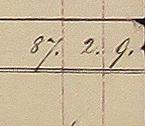 87. 2. 9.